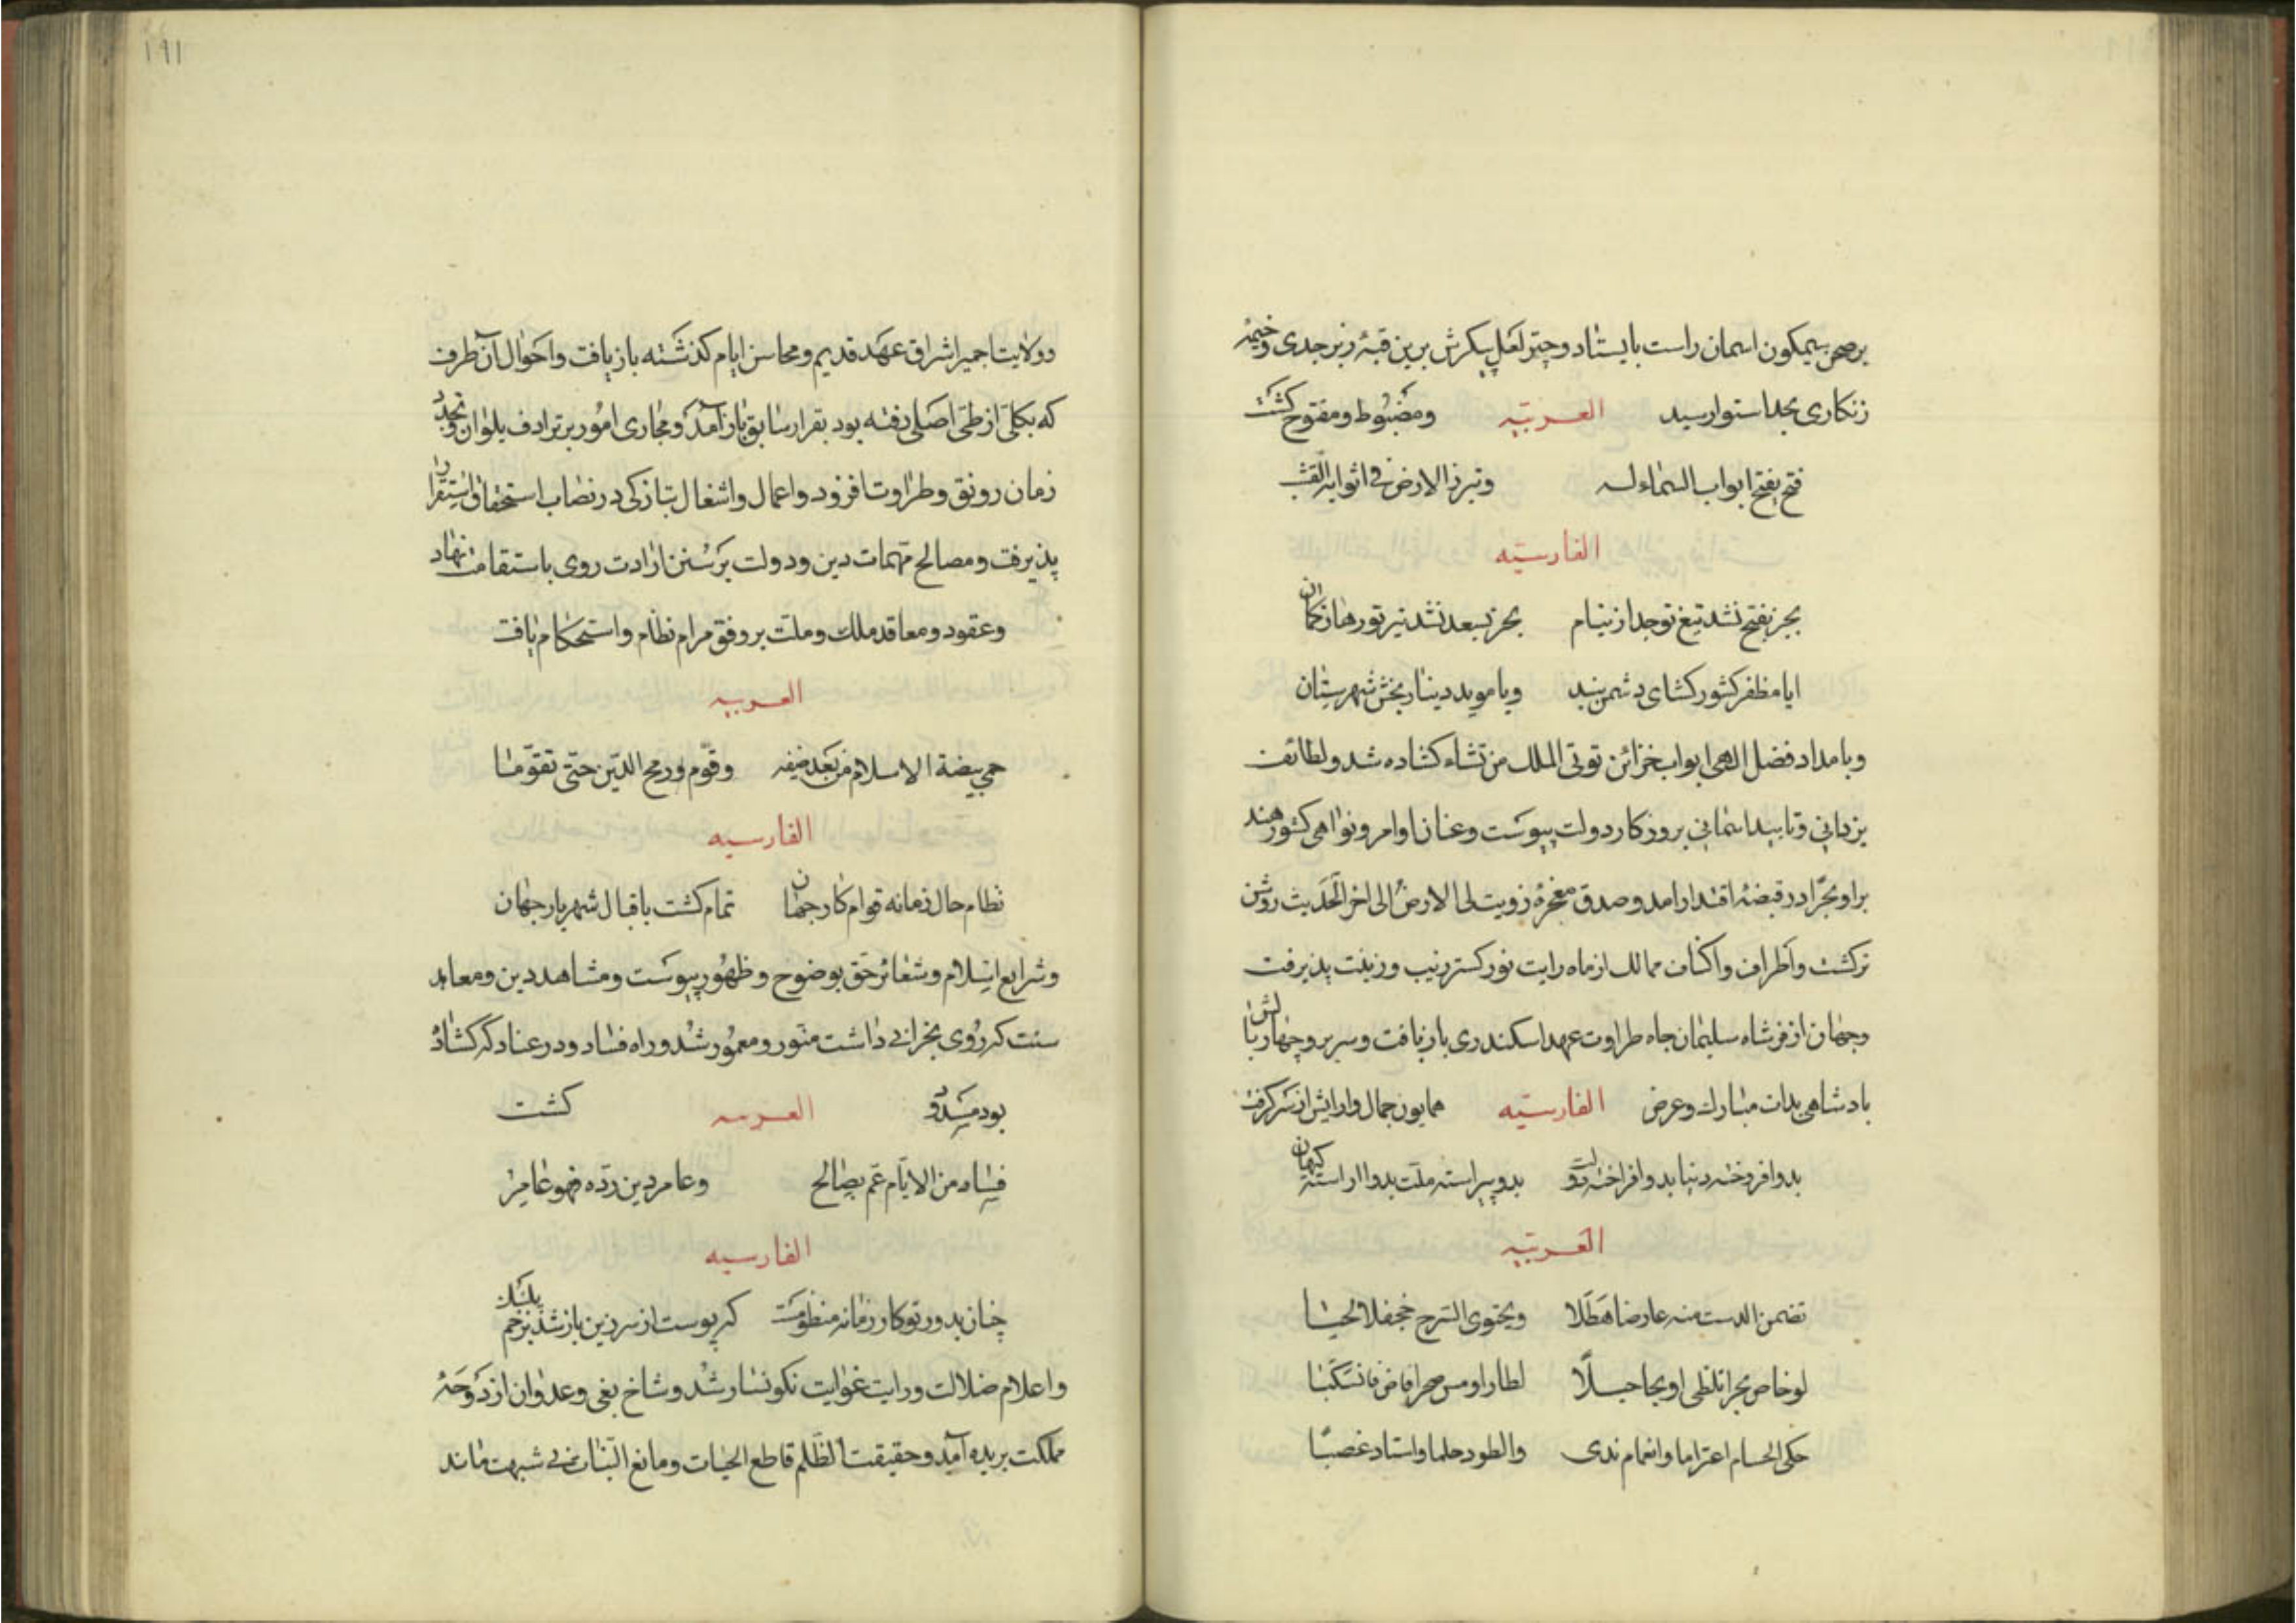 بر صحن سیمکون اسمان راست بایستاد و چتر لعل پیکرش برین قبهٔ زبرجدی و خیمهٔ
زنکاری بحد استوا رسید العربیّه ومضبُوط ومفتوح کشت
فتح یفتح ابواب السّماء له وتبرز الارض فی اثوابها القشب
الفارسیّه
بجز بفتح نشد تیغ تو جدا از نیام بجز بسعد نشد تیر تو رها ز کمان
ایا مظفر کشور کشای دشمن بند ویا موید دینار بخش شهر ستان
وبامداد فضل الهی ابواب خزائن توتی الملک من تشاء کشاده شد ولطائف
یزدانی وتایید اسمانی بروزکار دولت پیوست وعنان اوامر ونواهی کشور هند
برا وبحرا در قبضهٔ اقتدار امد وصدق معجزهٔ زویت لی الارض الی اخر الحَدیث روشن
ترکشت واطراف واکناف ممالک از ماه رایت نور کستر زیب وزینت پذیرفت
وجهان از فرّ شاه سلیمان جاه طراوت عهد اسکندری باز یافت وسریر وچهار بالش
بادشاهی بذات مبارک وعرض الفارسیّه همایون جمال وارایش از سر کرفت
بدو افروخته دنیا بدو افراخته دولت بدو پیراسته ملّت بدو اراسته کیهان
العَربیّه
تضمن الدست منه عارضا هَطَلا ویحتوی السّرج جحفلا لجبا
لو خاض بحرا تلظی او نحا جبلًا لطار او مس صخرا فاض فانسکبا
حکی الحسام اعتزاما والغمام ندی والطود حلما واستاد غصبًا
۱۹۱
وولایت اجمیر اشراق عهَد قدیم ومحاسن ایام کذشته باز یافت واحوال آن طرف
که بکلی از طی اصلی رفته بود بقرار سابق باز آمد ومجاری امُور بر ترادف ملوان وتجدّد
زمان رونق وطراوت افزود واعمال واشغال بتازکی در نصاب استحقاق استقرار
پذیرفت ومصالح مهّمات دین ودولت بر سُنن ارادت روی باستقامت نهاد
وعقود ومعاقد ملک وملت بر وفق مرام نظام واستحکام یافت
العربیه
حمی بیضة الاسلام من بَعد ضیفه وقوّم ورمح الدّین حتّی تقوّما
الفارسیه
نظام حال زمانه قوام کار جهان تمام کشت باقبال شهریار جهان
وشرایع اسلام وشعائر حق بوضوح وظهُور پیوست ومشاهد دین ومعابد
سنت که رُوی بخرابی داشت منور ومعمُور شُد وراه فساد ودر عناد که کشاده
بود مسدود العربیه کشت
فساد من الایّام عمّ بصالح وعامر دین ردّه فهو عامر
الفارسیه
چنان بدور تو کار زمانه منظومست که پوست از سر زین باز شد بزخم پلنک
واعلام ضلالت ورایت غوایت نکونسار شُد وشاخ بغی وعدوان از دَوحَهٔ
مملکت بریده آمد وحقیقت الظّلم قاطع الحیات ومانع النّبات بی شبهت ماند